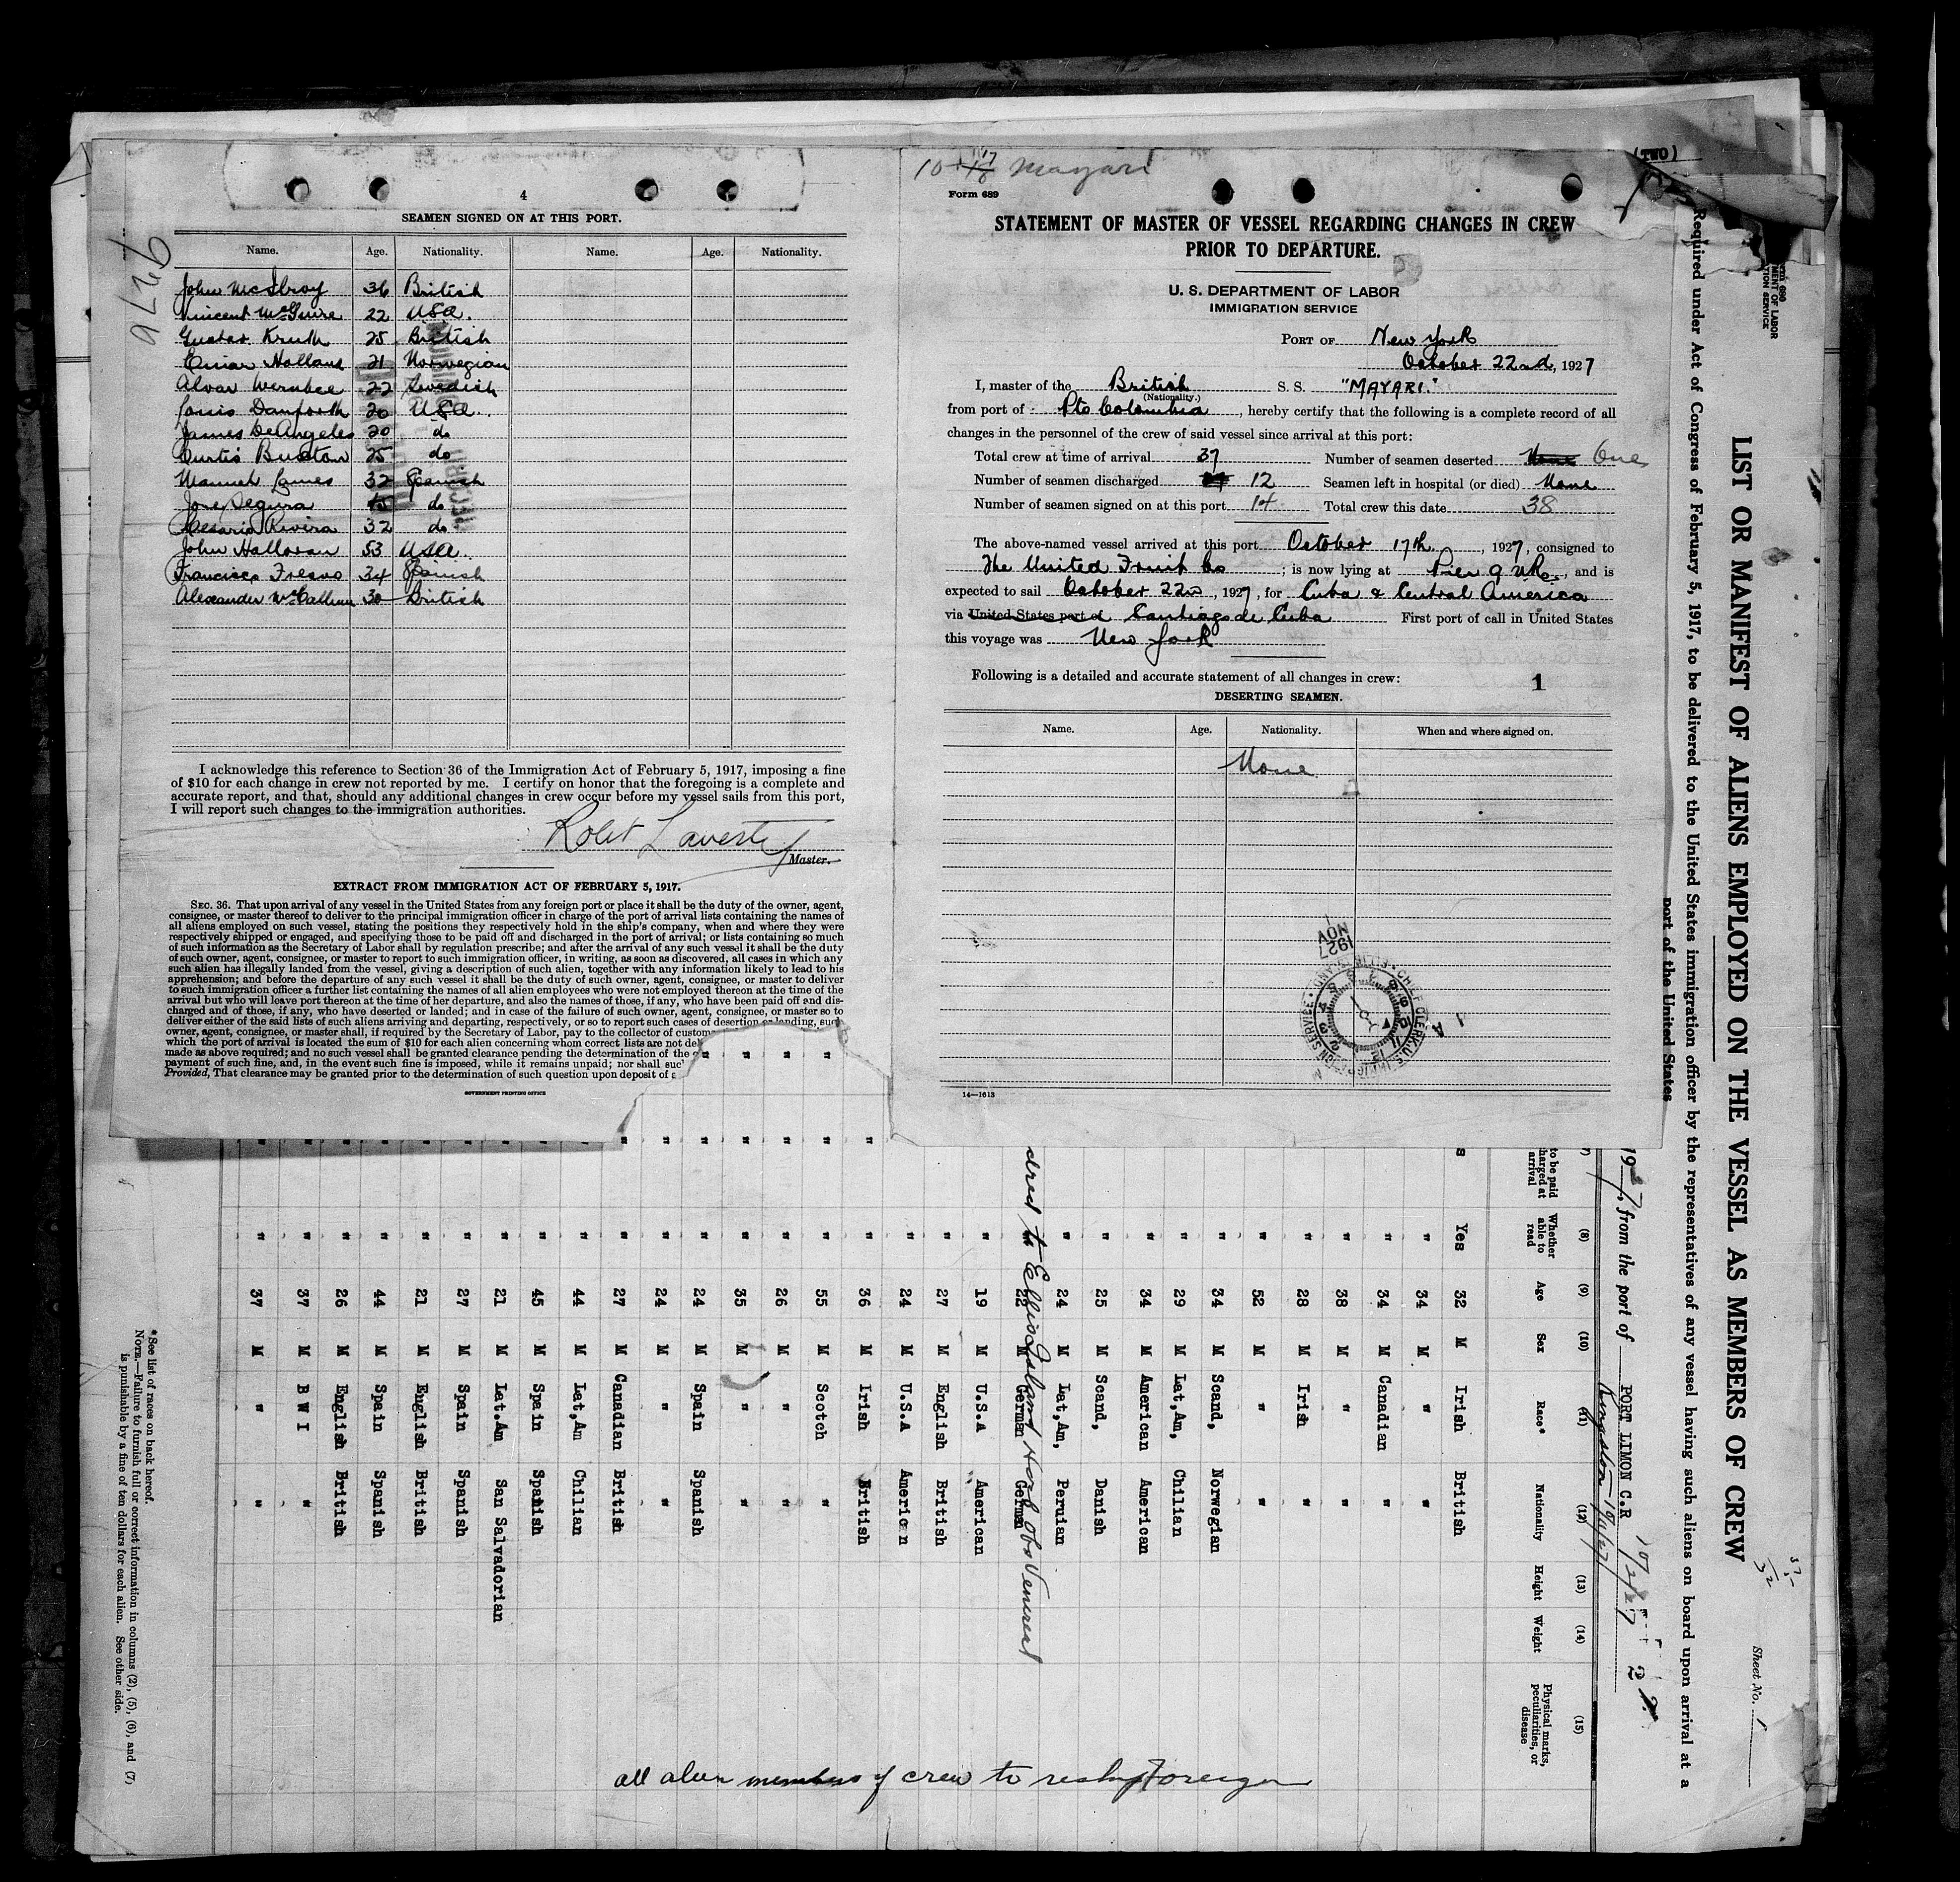 4
SEAMEN SIGNED ON AT THIS PORT.
Name. Age. Nationality. Name. Age. Nationality.
John McIlroy 36 British
Vincent McGuire 22 USA.
Gustav Kruth 25 British
Einar Holland 21 Norwegian
Alvar Wernbee 22 Swedish
Louis Danforth 20 USA.
James DeAngeles 20 do
Curtis Buxton 25 do
Manuel Lames 32 Spanish
Jose Segura 45 do
Cesario Rivera 32 do
John Halloran 53 USA.
Francisco Fresno 34 Spanish
Alexander McCallum 30 British
I acknowledge this reference to Section 36 of the Immigration Act of February 5, 1917, imposing a fine
of $10 for each change in crew not reported by me. I certify on honor that the foregoing is a complete and
accurate report, and that, should any additional changes in crew occur before my vessel sails from this port,
I will report such changes to the immigration authorities.
Robt Laverty
Master.
EXTRACT FROM IMMIGRATION ACT OF FEBRUARY 5, 1917.
SEC. 36. That upon arrival of any vessel in the United States from any foreign port or place it shall be the duty of the owner, agent,
consignee, or master thereof to deliver to the principal immigration officer in charge of the port of arrival lists containing the names of
all aliens employed on such vessel, stating the positions they respectively hold in the ship's company, when and where they were
respectively shipped or engaged, and specifying those to be paid off and discharged in the port of arrival; or lists containing so much
of such information as the Secretary of Labor shall by regulation prescribe; and after the arrival of any such vessel it shall be the duty
of such owner, agent, consignee, or master to report to such immigration officer, in writing, as soon as discovered, all cases in which any
such alien has illegally landed from the vessel, giving a description of such alien, together with any information likely to lead to his
apprehension; and before the departure of any such vessel it shall be the duty of such owner, agent, consignee, or master to deliver
to such immigration officer a further list containing the names of all alien employees who were not employed thereon at the time of the
arrival but who will leave port thereon at the time of her departure, and also the names of those, if any, who have been paid off and dis-
charged and of those, if any, who have deserted or landed; and in case of the failure of such owner, agent, consignee, or master so to
deliver either of the said lists of such aliens arriving and departing, respectively, or so to report such cases of desertion or landing, such
owner, agent, consignee, or master shall, if required by the Secretary of Labor, pay to the collector of customs
which the port of arrival is located the sum of $10 for each alien concerning whom correct lists are not del
made as above required; and no such vessel shall be granted clearance pending the determination of the
payment of such fine, and, in the event such fine is imposed, while it remains unpaid; nor shall suc
Provided, That clearance may be granted prior to the determination of such question upon deposit of
GOVERNMENT PRINTING OFFICE
10 + 18 17 Mayari
Form 689
STATEMENT OF MASTER OF VESSEL REGARDING CHANGES IN CREW
PRIOR TO DEPARTURE.
U. S. DEPARTMENT OF LABOR
IMMIGRATION SERVICE
PORT OF New York
October 22nd, 1927
I, master of the British S. S. "MAYARI."
(Nationality.)
from port of Pto Colombia, hereby certify that the following is a complete record of all
changes in the personnel of the crew of said vessel since arrival at this port:
Total crew at time of arrival 37 Number of seamen deserted None One
Number of seamen discharged 12 Seamen left in hospital (or died) None
Number of seamen signed on at this port 14 Total crew this date 38
The above-named vessel arrived at this port October 17th, 1927, consigned to
The United Fruit Co; is now lying at Pier 9 NR., and is
expected to sail October 22nd, 1927, for Cuba & Central America
via United States port of Santiago de Cuba First port of call in United States
this voyage was New York
Following is a detailed and accurate statement of all changes in crew: 1
DESERTING SEAMEN.
Name. Age. Nationality. When and where signed on.
None
1927
NOV
14—1613
(TWO)
LIST OR MANIFEST OF ALIENS EMPLOYED ON THE VESSEL AS MEMBERS OF CREW
Sheet No. 1
Required under Act of Congress of February 5, 1917, to be delivered to the United States immigration officer by the representatives of any vessel having such aliens on board upon arrival at a
port of the United States
1927, from the port of PORT LIMON C.R 10/2/27
(8) (9) (10) (11) (12) (13) (14) (15)
to be paid
Whether able to read Age Sex Race* Nationality Height Weight Physical marks, peculiarities, or disease
Yes 32 M Irish British
" 34 M " "
" 34 M Canadian "
" 38 M " "
" 28 M Irish "
" 52 M " "
" 34 M Scand, Norwegian
" 29 M Lat,Am, Chilian
" 34 M American American
" 25 M Scand, Danish
" 24 M Lat,Am, Peruvian
22 M German German
" 19 M U.S.A American
" 27 M English British
" 24 M U.S.A American
" 36 M Irish British
" 55 M Scotch "
" 26 M " "
" 35 M " "
" 24 M Spain Spanish
" 24 M " "
" 27 M Canadian British
" 44 M Lat,Am Chilian
" 45 M Spain Spanish
" 21 M Lat.Am San Salvadorian
" 27 M Spain Spanish
" 21 M English British
" 44 M Spain Spanish
" 26 M English British
" 37 M B W I "
" 37 M " "
to Ellis Island Hosp obs Venereal
all alien members of crew to reship foreign
*See list of races on back hereof.
NOTE.—Failure to furnish full or correct information in columns (2), (5), (6), and (7)
is punishable by a fine of ten dollars for each alien. See other side.